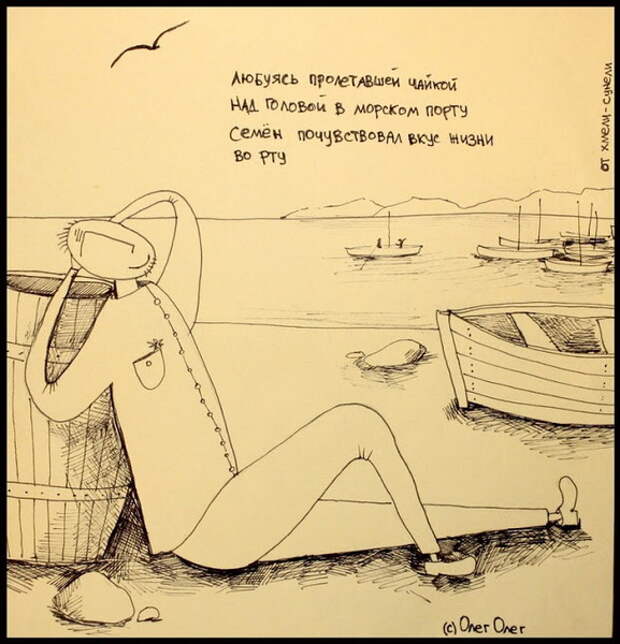 Любуясь пролетавшей чайкой
над головой в морском порту
Семён почувствовал вкус жизни
во рту
от хмели-сунели
(c) Олег Олег